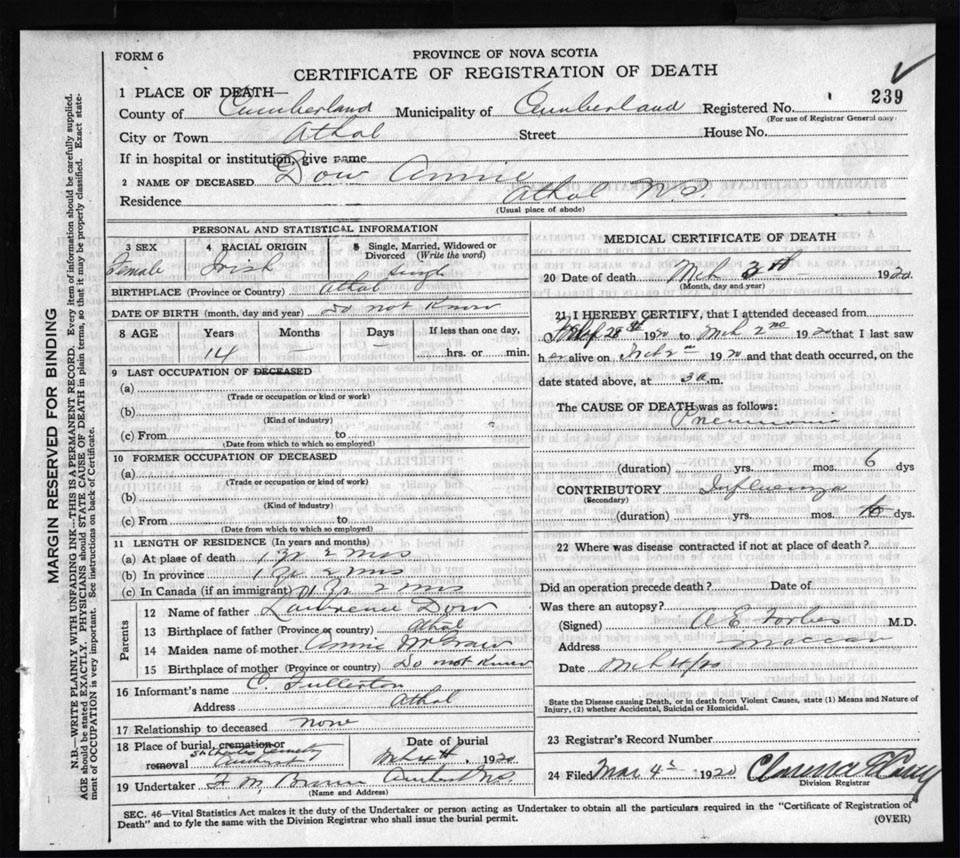 FORM 6
PROVINCE OF NOVA SCOTIA
CERTIFICATE OF REGISTRATION OF DEATH
1 PLACE OF DEATH—
County of Cumberland Municipality of Cumberland Registered No. 239
(For use of Registrar General only)
City or Town Athol Street House No.
If in hospital or institution, give name
2 NAME OF DECEASED Dow Annie
Residence Athol N.S.
(Usual place of abode)
PERSONAL AND STATISTICAL INFORMATION
3 SEX 4 RACIAL ORIGIN 5 Single, Married, Widowed or
Divorced (Write the word)
Female Irish Single
BIRTHPLACE (Province or Country) Athol
DATE OF BIRTH (month, day and year) Do not Know
8 AGE Years Months Days If less than one day,
14 — — hrs. or min.
9 LAST OCCUPATION OF DECEASED
(a)
(Trade or occupation or kind or work)
(b)
(Kind of industry)
(c) From to
(Date from which to which so employed)
10 FORMER OCCUPATION OF DECEASED
(a)
(Trade or occupation or kind of work)
(b)
(Kind of industry)
(c) From to
(Date from which to which so employed)
11 LENGTH OF RESIDENCE (In years and months)
(a) At place of death 1 yr 2 mos
(b) In province 1 yr 2 mos
(c) In Canada (if an immigrant) 1 yr 2 mos
Parents
12 Name of father Lawrence Dow
13 Birthplace of father (Province or country) Athol
14 Maiden name of mother Annie McGraw
15 Birthplace of mother (Province or country) Do not Know
16 Informant's name C. Fullerton
Address Athol
17 Relationship to deceased none
18 Place of burial, cremation or Date of burial
removal St Charles Cemetery Amherst Mch 4th, 1920
19 Undertaker F. M. Brown Amherst N.S.
(Name and Address)
MEDICAL CERTIFICATE OF DEATH
20 Date of death Mch 3th 1920
(Month, day and year)
21 I HEREBY CERTIFY, that I attended deceased from
Feb 28th 1920 to Mch 2nd 1920 that I last saw
her alive on Mch 2nd 1920 and that death occurred, on the
date stated above, at 3 a.m.
The CAUSE OF DEATH was as follows:
Pneumonia
(duration) yrs. mos. 6 dys
CONTRIBUTORY Influenza
(Secondary)
(duration) yrs. mos. dys.
22 Where was disease contracted if not at place of death?
Did an operation precede death? Date of
Was there an autopsy?
(Signed) A E Forbes M.D.
Address Maccan
Date Mch 4/20
State the Disease causing Death, or in death from Violent Causes, state (1) Means and Nature of
Injury, (2) whether Accidental, Suicidal or Homicidal.
23 Registrar's Record Number
24 Filed Mar 4th 1920
Division Registrar
SEC. 46—Vital Statistics Act makes it the duty of the Undertaker or person acting as Undertaker to obtain all the particulars required in the "Certificate of Registration of
Death" and to fyle the same with the Division Registrar who shall issue the burial permit.
(OVER)
MARGIN RESERVED FOR BINDING
N.B.—WRITE PLAINLY WITH UNFADING INK—THIS IS A PERMANENT RECORD. Every item of information should be carefully supplied.
AGE should be stated EXACTLY. PHYSICIANS should STATE CAUSE OF DEATH in plain terms, so that it may be properly classified. Exact state-
ment of OCCUPATION is very important. See instructions on back of Certificate.